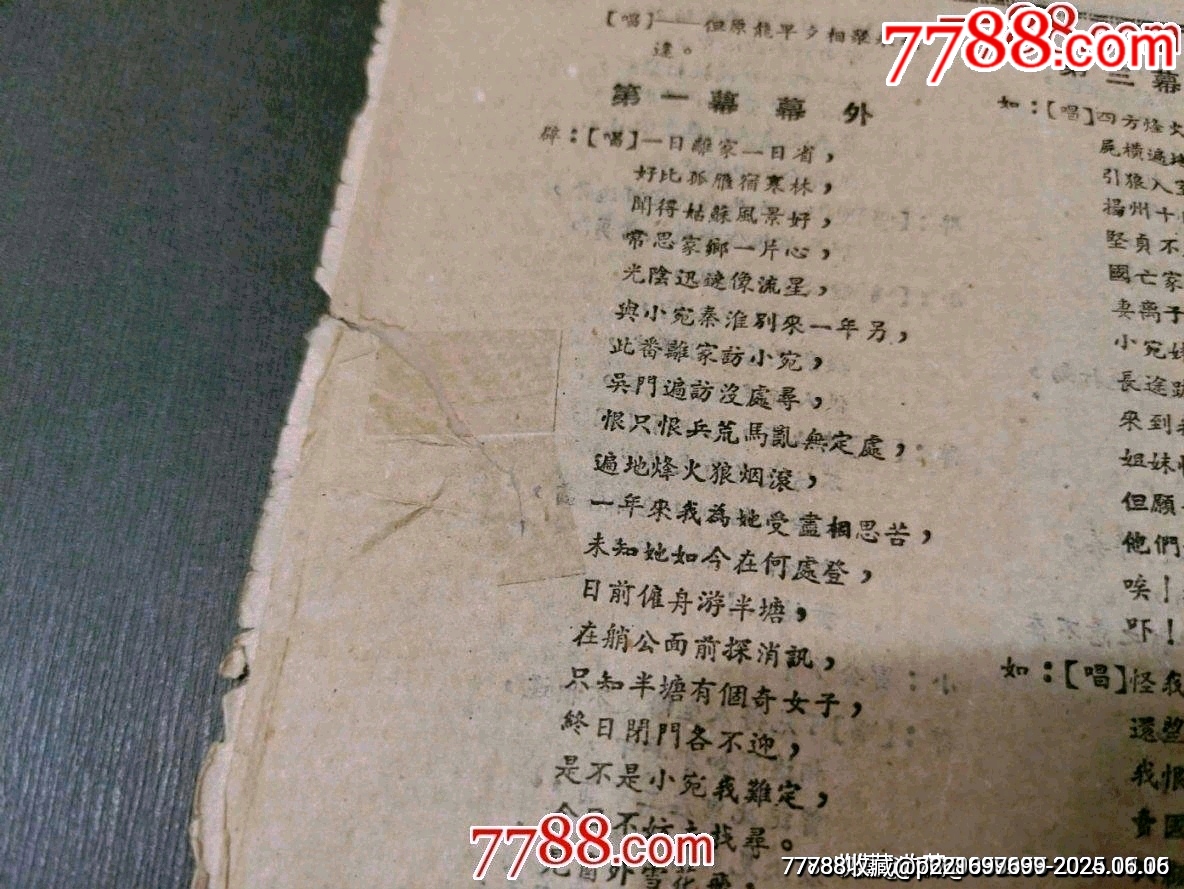 【唱】——但原能平夕相聚
達。
第一幕 幕外
辟：【唱】一日離家一日省，
好比孤雁宿寒林，
聞得姑蘇風景好，
常思家鄉一片心，
光陰迅速像流星，
與小宛秦淮別來一年另，
此番離家訪小宛，
吳門遍訪沒處尋，
恨只恨兵荒馬亂無定處，
遍地烽火狼烟滾，
一年來我為她受盡相思苦，
未知她如今在何處登，
日前僱舟游半塘，
在艄公面前探消訊，
只知半塘有個奇女子，
終日閉門各不迎，
是不是小宛我難定，
不妨去找尋。
窗外雪花飛
第三幕
如：【唱】四方烽火
屍橫遍地
引狼入室
揚州十日
堅貞不
國亡家
妻离子
小宛妹
長途跋
來到
姐妹
但願
他們
唉！
吓！
如：【唱】怪我
還愁
我恨
賣國
7788.com
7788.com
7788收藏@p221697699-2025.06.06